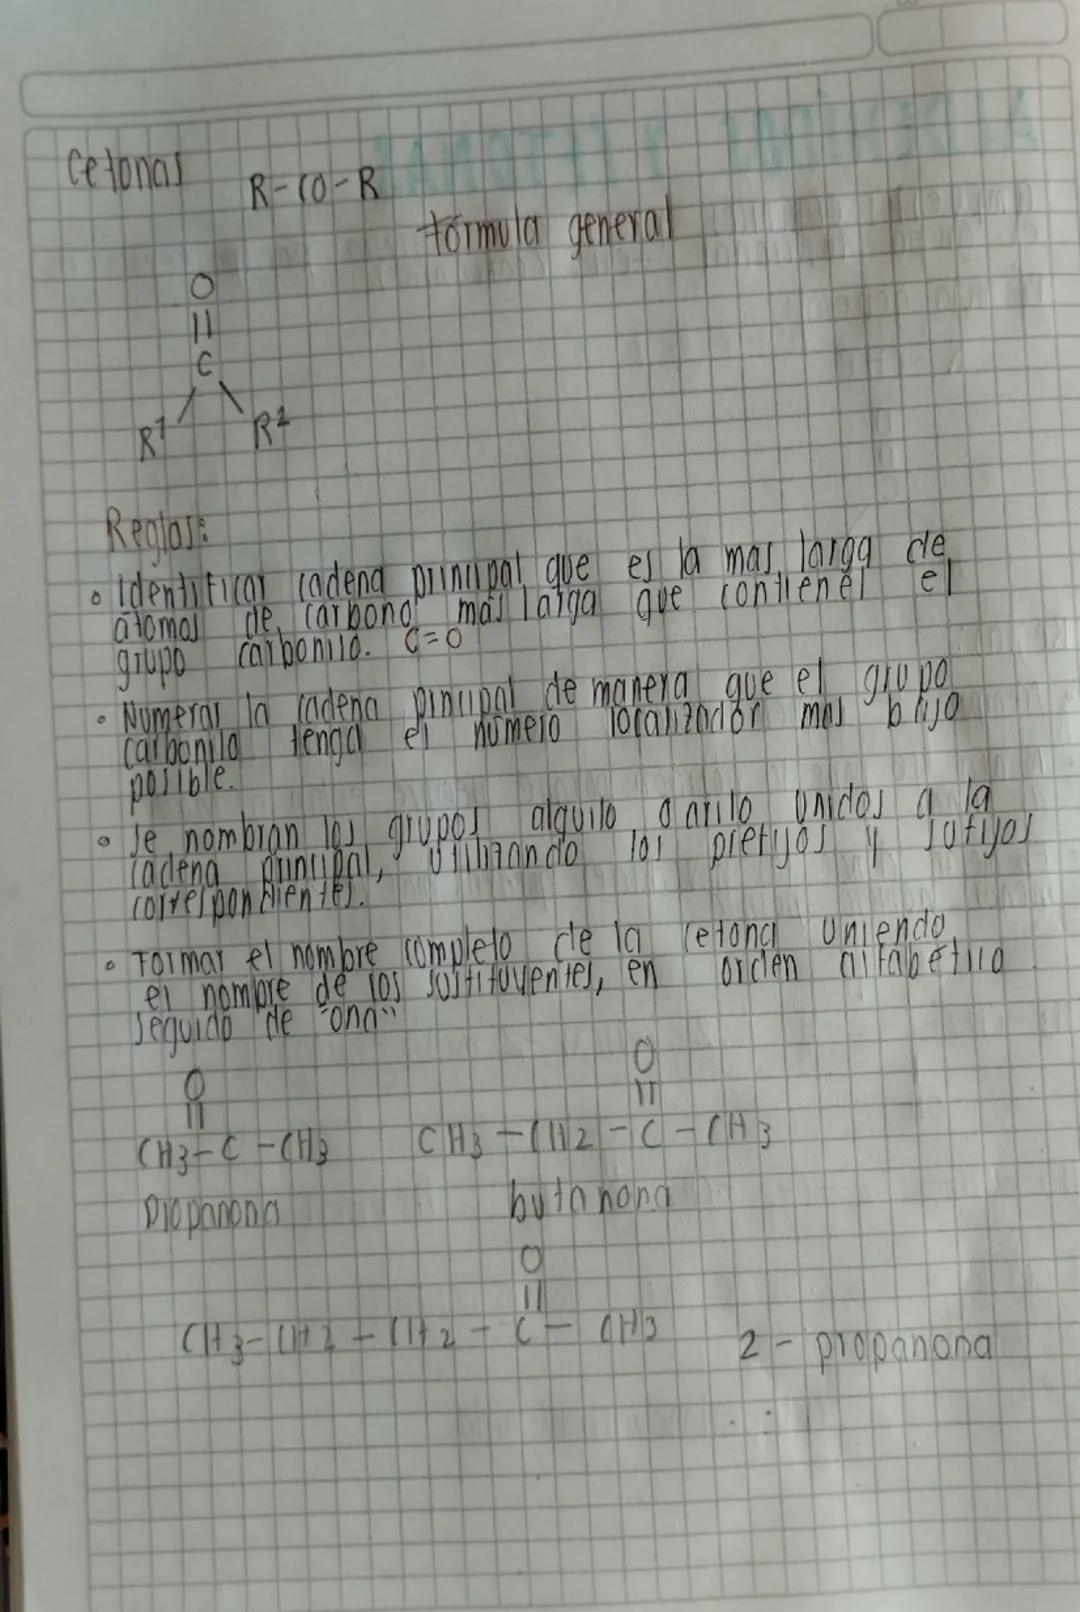 Cetonas
R-CO-R
fórmula general
O
||
C
R¹ R²
Reglas:
• Identificar cadena principal que es la mas larga de
átomos de carbono más larga que contienel el
grupo carbonilo. C=O
• Numerar la cadena pincipal de manera que el grupo
carbonilo tenga el número localizador mas bajo
posible.
• Se nombran los grupos alquilo o arilo unidos a la
cadena principal, utilizando los prefijos y sufijos
correspondientes.
• Formar el nombre completo de la cetona uniendo
el nombre de los sustituyentes, en orden alfabético
seguido de "ona"
O
||
CH3-C-CH3
Propanona
O
||
CH3-CH2-C-CH3
butanona
O
||
CH3-CH2-CH2-C-CH3
2-propanona